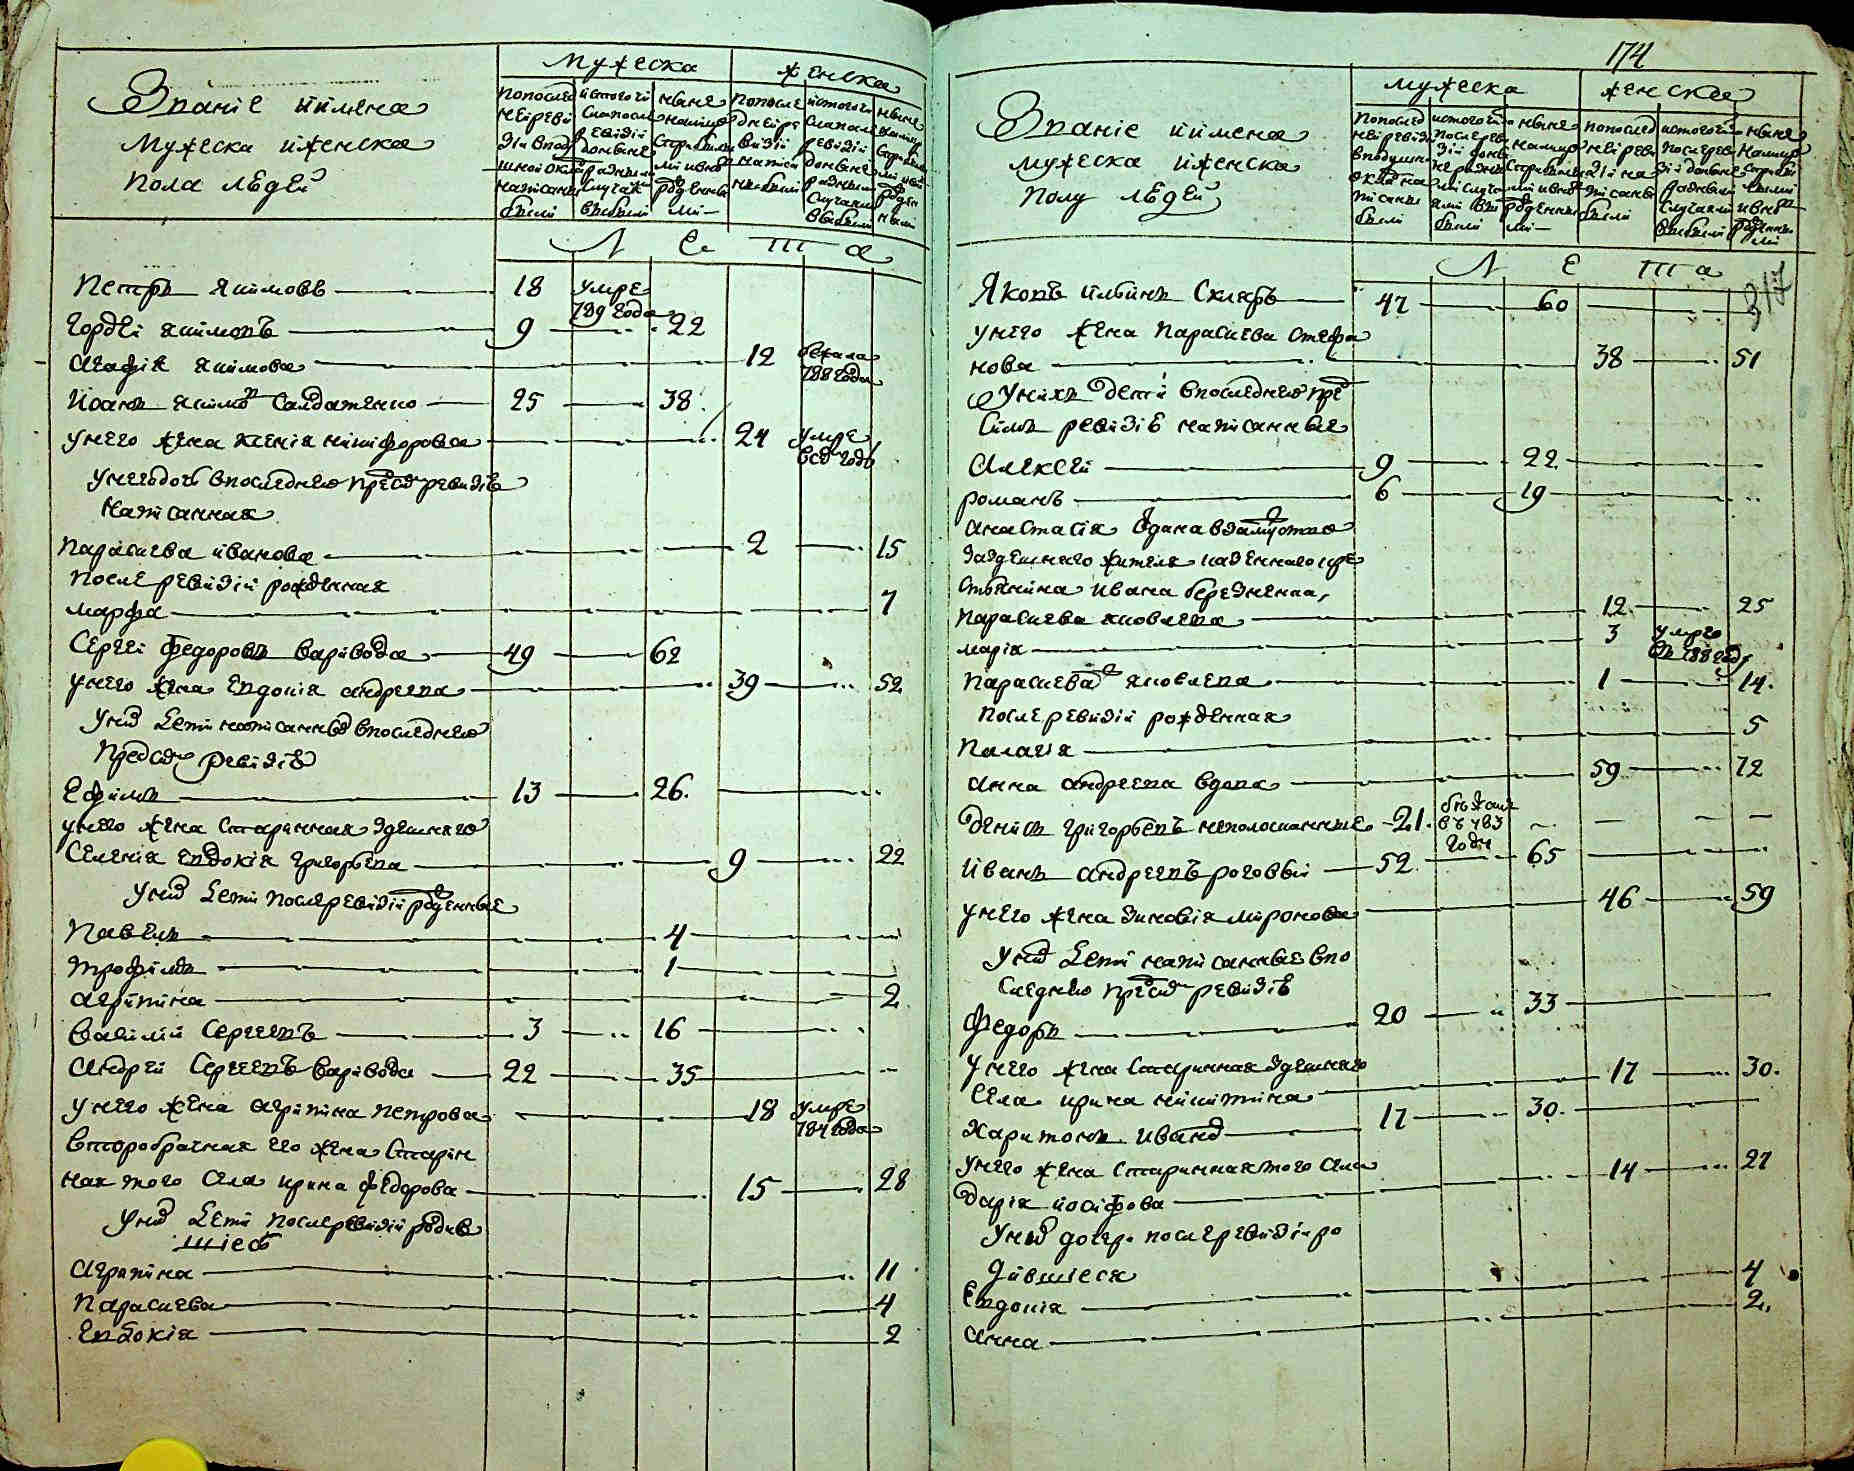 Званіе и имена
Мужеска и женска
пола людей
Мужеска
женска
По последней ревизіи в подушной оклад написаны были
Из того числа после ревизіи до ныне разными случаи выбыли
Ныне на лицо с прибылыми и вновь рожденными
По последней ревизіи написаны были
Из того числа после ревизіи до ныне разными случаи выбыли
Ныне на лицо с прибылыми и вновь рожденными
Л е т а
Петръ якимовъ 18 умре 789 года
Гордей якимовъ 9 22
Агафія якимова 12 бежала 788 года
Иоанъ якимов Салдатенко 25 38
у него жена ксенія никифоровна 24 умре
у него дочь в последнею пред сим ревизію
написанная
Парасκева иванова 2 15
После ревизіи рожденная
марфа 7
Сергей федоровъ варивода 49 62
у него жена Евдокія андреева 39 52
у них дети написанные в последнею
пред сим ревизію
Ефимъ 13 26
у него жена старинная здешнего
селенія Евдокія григорьева 9 22
у них дети после ревизіи рожденные
Павелъ 4
трофимъ 1
агрипина 2
Василій Сергеевъ 3 16
Андрей Сергеевъ варивода 22 35
у него жена агрипина петрова 18 умре 784 года
второбрачная его жена старин
ная того села ирина федорова 15 28
у них дети после ревизіи родив
шіесь
агрипина 11
Парасκева 4
Евдокія 2
174
317
Званіе и имена
мужеска и женска
полу людей
мужеска
женска
По последней ревизіи в подушной оклад написаны были
Из того числа после ревизіи до ныне разными случаями выбыли
Ныне на лицо с прибылыми и вновь рожденными
По последней ревизіи написаны были
Из того числа после ревизіи до ныне разными случаями выбыли
Ныне на лицо с прибылыми и вновь рожденными
Л е т а
Яковъ ильинъ Скляръ 47 60
у него жена парасκева стефа
нова 38 51
у них дети в последнею пре
симъ ревизію написанные
Алексей 9 22
романъ 6 19
анастасія вдана в замужство
за здешнего жителя казенного кре
стьянина ивана
парасκева яковлева 12 25
марія 3 умре въ 788 году
Парасκева яковлева 1 14
После ревизіи рожденная
Палагія 5
анна андреева вдова 59 72
денисъ григорьевъ 21 бежал въ 783 годы
иванъ андреевъ роговый 52 65
у него жена зиновія миронова 46 59
у них дети написанные в по
следнею пред сим ревизію
федоръ 20 33
у него жена старинная здешнего
села ирина никитина 17 30
Харитонъ иванов 17 30
у него жена старинная того села
дарія иосифова 14 27
у них дочери после ревизіи ро
дившіеся
Евдокія 4
анна 2